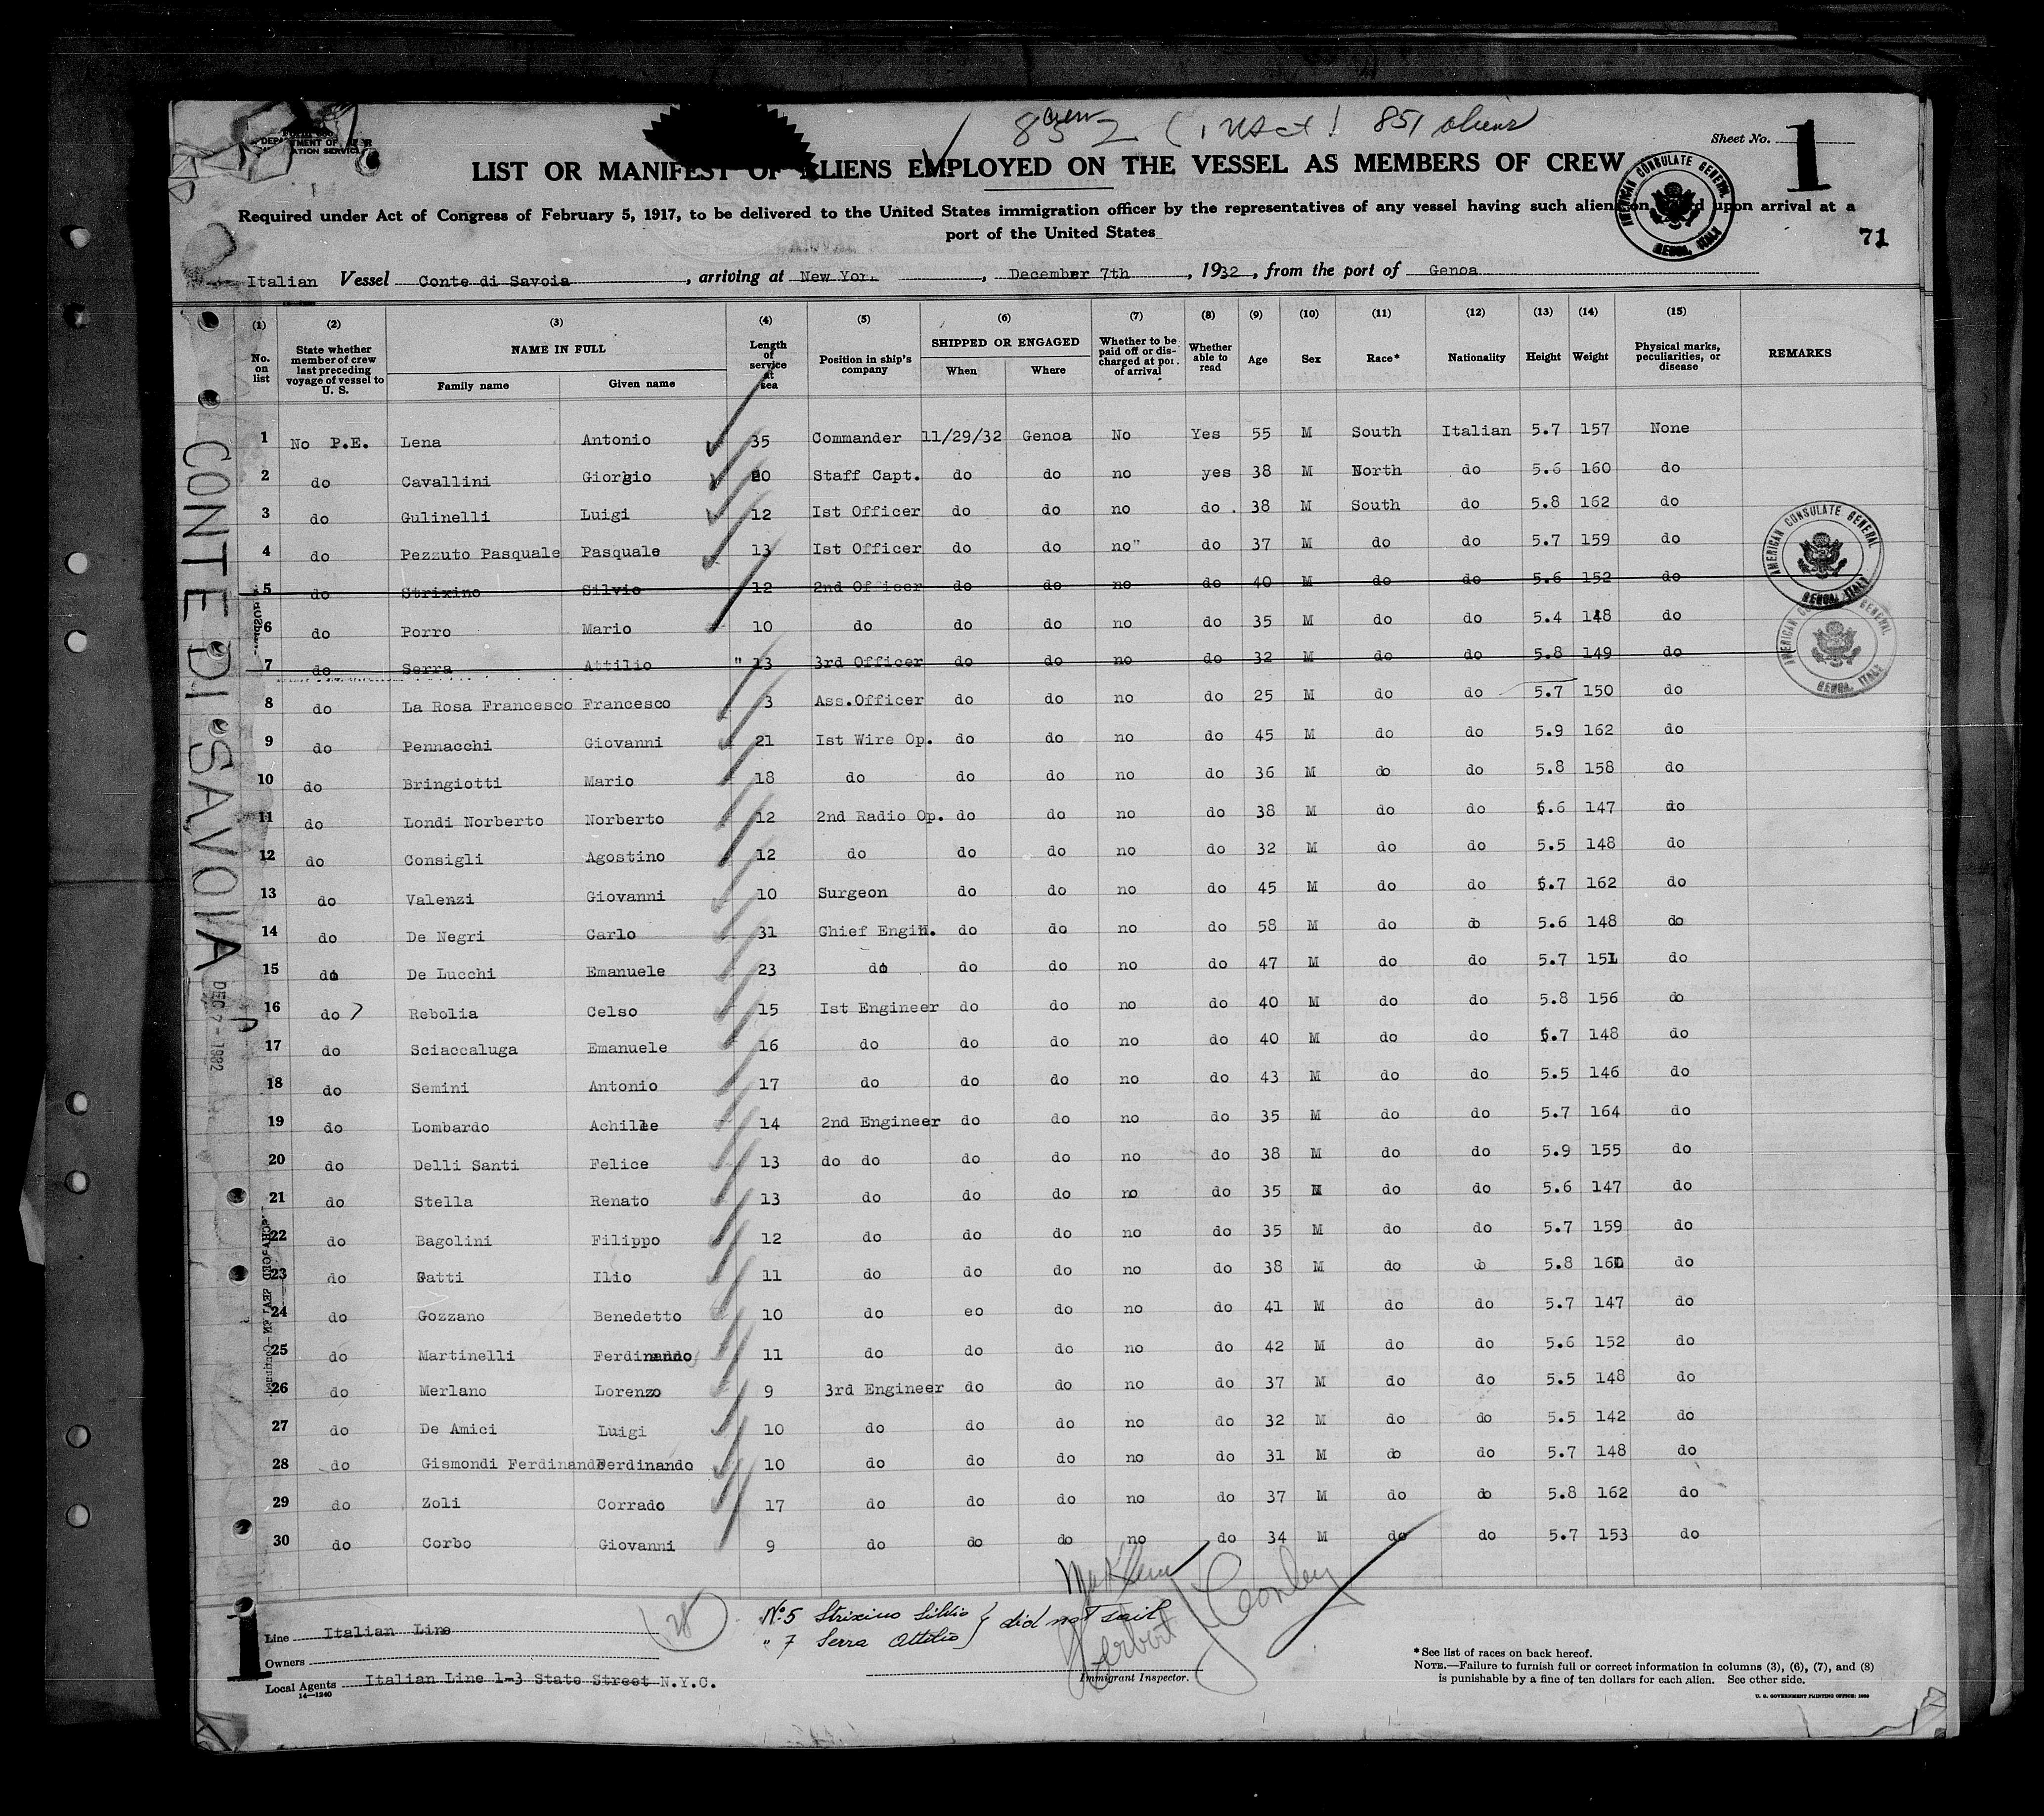 crew
852 ( 1 USct ) 851 aliens
Sheet No. 1
LIST OR MANIFEST OF ALIENS EMPLOYED ON THE VESSEL AS MEMBERS OF CREW
Required under Act of Congress of February 5, 1917, to be delivered to the United States immigration officer by the representatives of any vessel having such aliens on board upon arrival at a
port of the United States
AMERICAN CONSULATE GENERAL
GENOA, ITALY
71
Italian Vessel Conte di Savoia, arriving at New Yor, December 7th, 1932, from the port of Genoa
(1) (2) (3) (4) (5) (6) (7) (8) (9) (10) (11) (12) (13) (14) (15)
No. on list State whether member of crew last preceding voyage of vessel to U. S. NAME IN FULL Family name Given name Length of service at sea Position in ship's company SHIPPED OR ENGAGED When Where Whether to be paid off or discharged at port of arrival Whether able to read Age Sex Race* Nationality Height Weight Physical marks, peculiarities, or disease REMARKS
1 No P.E. Lena Antonio 35 Commander 11/29/32 Genoa No Yes 55 M South Italian 5.7 157 None
2 do Cavallini Giorgio 20 Staff Capt. do do no yes 38 M North do 5.6 160 do
3 do Gulinelli Luigi 12 Ist Officer do do no do . 38 M South do 5.8 162 do
4 do Pezzuto Pasquale Pasquale 13 Ist Officer do do no" do 37 M do do 5.7 159 do
5 do Strixino Silvio 12 2nd Officer do do no do 40 M do do 5.6 152 do
6 do Porro Mario 10 do do do no do 35 M do do 5.4 148 do
7 do Serra Attilio " 13 3rd Officer do do no do 32 M do do 5.8 149 do
8 do La Rosa Francesco Francesco 3 Ass.Officer do do no do 25 M do do 5.7 150 do
9 do Pennacchi Giovanni 21 Ist Wire Op. do do no do 45 M do do 5.9 162 do
10 do Bringiotti Mario 18 do do do no do 36 M do do 5.8 158 do
11 do Londi Norberto Norberto 12 2nd Radio Op. do do no do 38 M do do 5.6 147 do
12 do Consigli Agostino 12 do do do no do 32 M do do 5.5 148 do
13 do Valenzi Giovanni 10 Surgeon do do no do 45 M do do 5.7 162 do
14 do De Negri Carlo 31 Chief Engin. do do no do 58 M do do 5.6 148 do
15 do De Lucchi Emanuele 23 do do do no do 47 M do do 5.7 151 do
16 do Rebolia Celso 15 Ist Engineer do do no do 40 M do do 5.8 156 do
17 do Sciaccaluga Emanuele 16 do do do no do 40 M do do 5.7 148 do
18 do Semini Antonio 17 do do do no do 43 M do do 5.5 146 do
19 do Lombardo Achille 14 2nd Engineer do do no do 35 M do do 5.7 164 do
20 do Delli Santi Felice 13 do do do do no do 38 M do do 5.9 155 do
21 do Stella Renato 13 do do do no do 35 M do do 5.6 147 do
22 do Bagolini Filippo 12 do do do no do 35 M do do 5.7 159 do
23 do Gatti Ilio 11 do do do no do 38 M do do 5.8 160 do
24 do Gozzano Benedetto 10 do eo do no do 41 M do do 5.7 147 do
25 do Martinelli Ferdinando 11 do do do no do 42 M do do 5.6 152 do
26 do Merlano Lorenzo 9 3rd Engineer do do no do 37 M do do 5.5 148 do
27 do De Amici Luigi 10 do do do no do 32 M do do 5.5 142 do
28 do Gismondi Ferdinando Ferdinando 10 do do do no do 31 M do do 5.7 148 do
29 do Zoli Corrado 17 do do do no do 37 M do do 5.8 162 do
30 do Corbo Giovanni 9 do do do no do 34 M do do 5.7 153 do
AMERICAN CONSULATE GENERAL
GENOA, ITALY
AMERICAN CONSULATE GENERAL
GENOA, ITALY
CONTE DI SAVOIA
DEC 7 - 1932
1
28
No. 5 Strixino Silvio } did not sail
" 7 Serra Attilio
Herbert Conley
Immigrant Inspector.
Line Italian Line
Owners
Local Agents Italian Line 1-3 State Street N.Y.C.
14—1240
* See list of races on back hereof.
NOTE.—Failure to furnish full or correct information in columns (3), (6), (7), and (8)
is punishable by a fine of ten dollars for each alien. See other side.